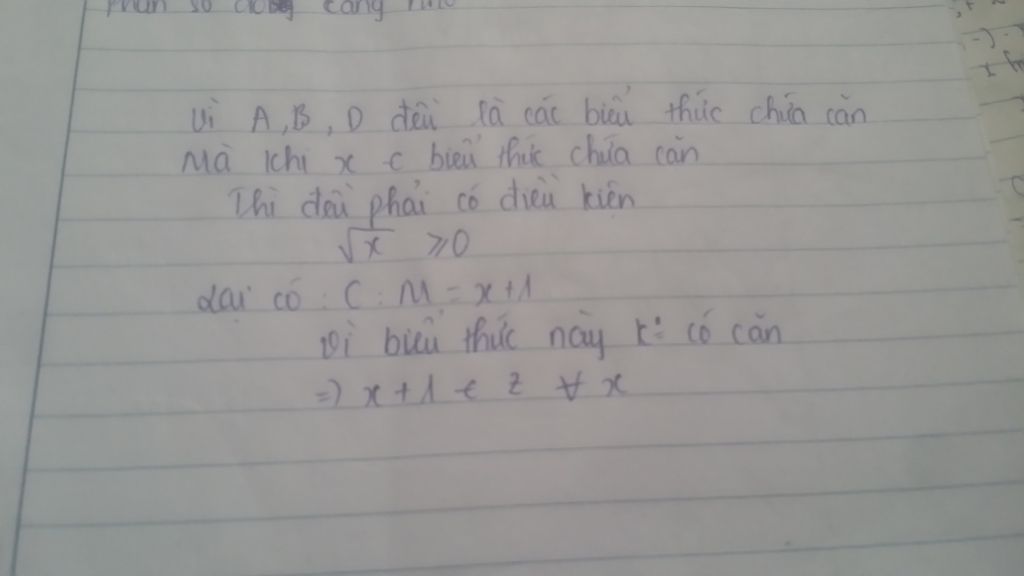 phân số
càng nhỏ
Vì A, B, D đều là các biểu thức chứa căn
Mà khi x ∈ biểu thức chứa căn
Thì đều phải có điều kiện
√x ≥ 0
Lại có : C : M = x + 1
Vì biểu thức này k: có căn
=> x + 1 ∈ z ∀ x